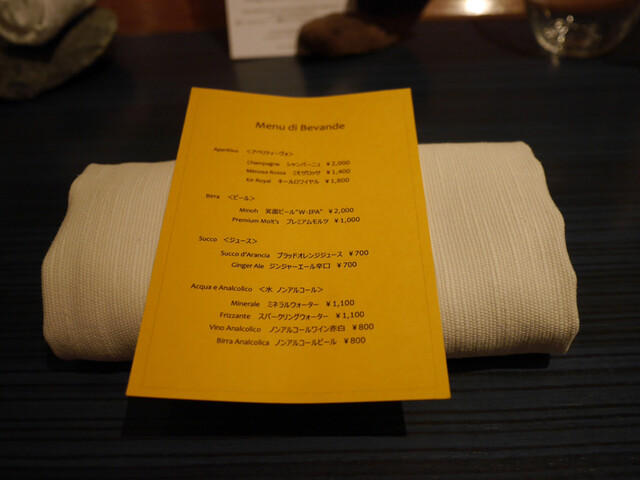 Menu di Bevande
Aperitivo <アペリティーヴォ>
Champagne シャンパーニュ ¥2,000
Mimosa Rossa ミモザロッサ ¥1,400
Kir Royal キールロワイヤル ¥1,800
Birra <ビール>
Minoh 箕面ビール"W-IPA" ¥2,000
Premium Molt's プレミアムモルツ ¥1,000
Succo <ジュース>
Succo d'Arancia ブラッドオレンジジュース ¥700
Ginger Ale ジンジャーエール辛口 ¥700
Acqua e Analcolico <水 ノンアルコール>
Minerale ミネラルウォーター ¥1,100
Frizzante スパークリングウォーター ¥1,100
Vino Analcolico ノンアルコールワイン赤白 ¥800
Birra Analcolica ノンアルコールビール ¥800